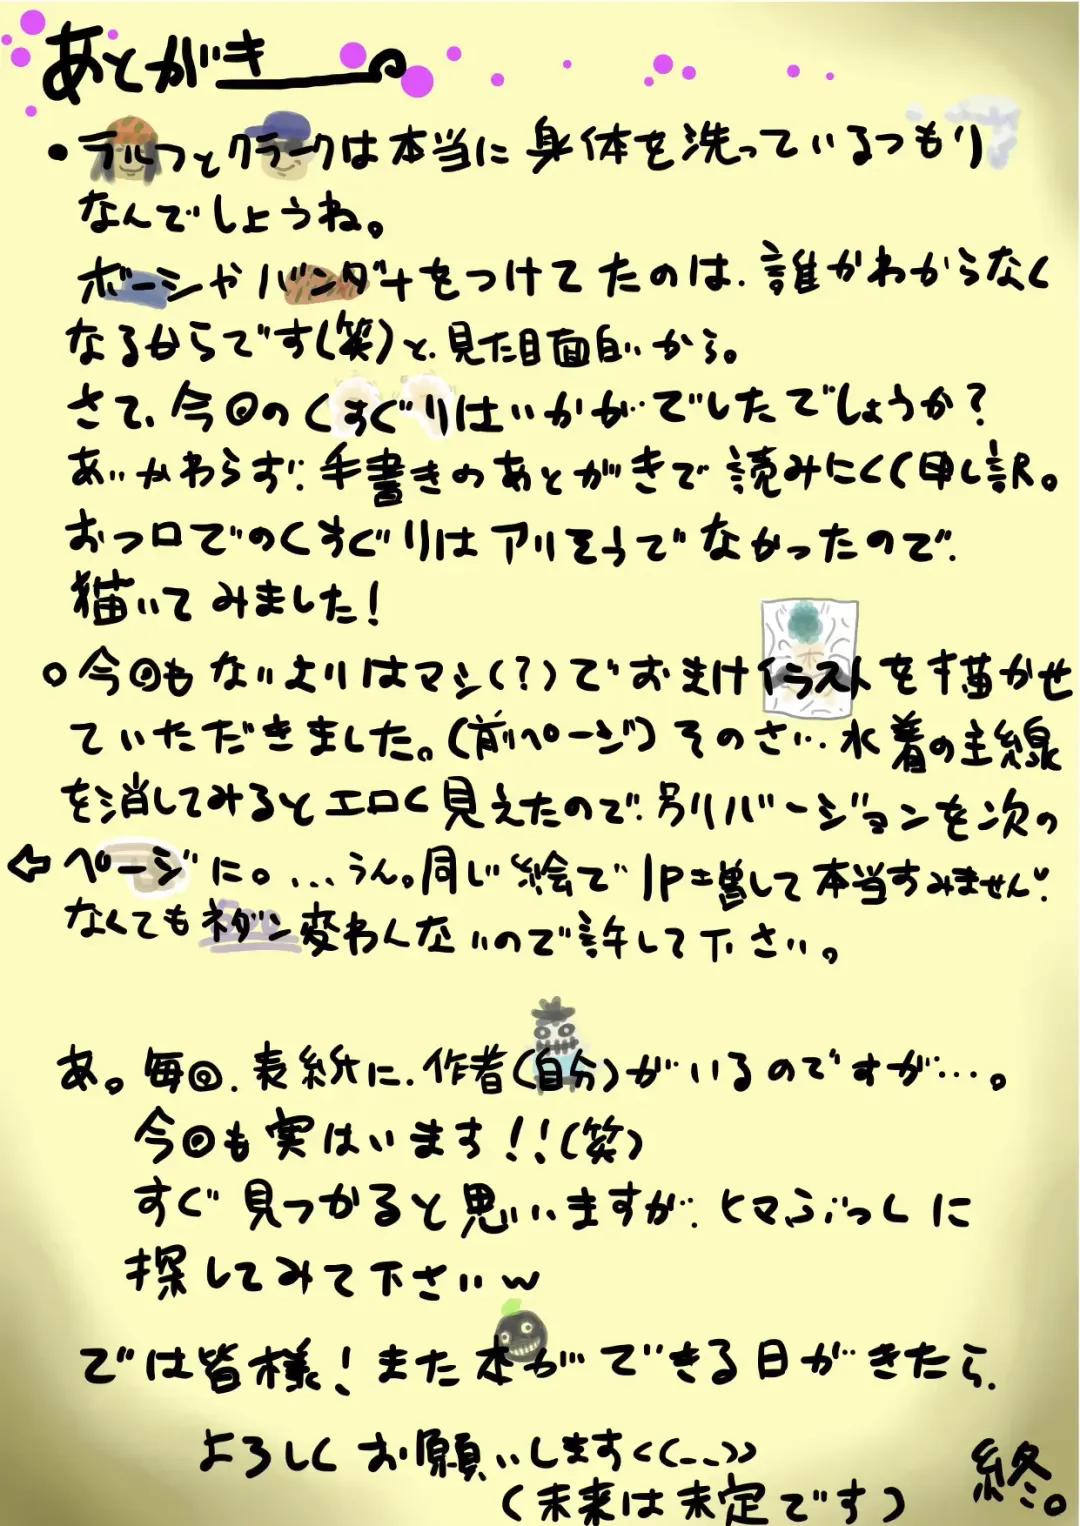 あとがき
・ラルフとクラークは本当に身体を洗っているつもり
なんでしょうね。
ボーシやバンダナをつけてたのは、誰かわからなく
なるからです(笑)と、見た目面白いから。
さて、今回のくすぐりはいかがでしたでしょうか?
あいかわらず、手書きのあとがきで読みにくく申し訳。
おっ口でのくすぐりはアリそうでなかったので、
描いてみました!
○今回もないよりはマシ(?)でおまけイラストを描かせ
ていただきました。(前ページ)そのさい…水着の主線
を消してみるとエロく見えたので、別バージョンを次の
⇦ページに。…うん。同じ絵で1P増して本当すみません、
なくてもネダン変わんないので許して下さい。
あ。毎回、表紙に、作者(自分)がいるのですが…。
今回も実はいます!!(笑)
すぐ見つかると思いますが、ヒマぶっしに
探してみて下さいw
では皆様!また本ができる日がきたら、
よろしくお願いします<(_ _)>
(未来は未定です)
終。